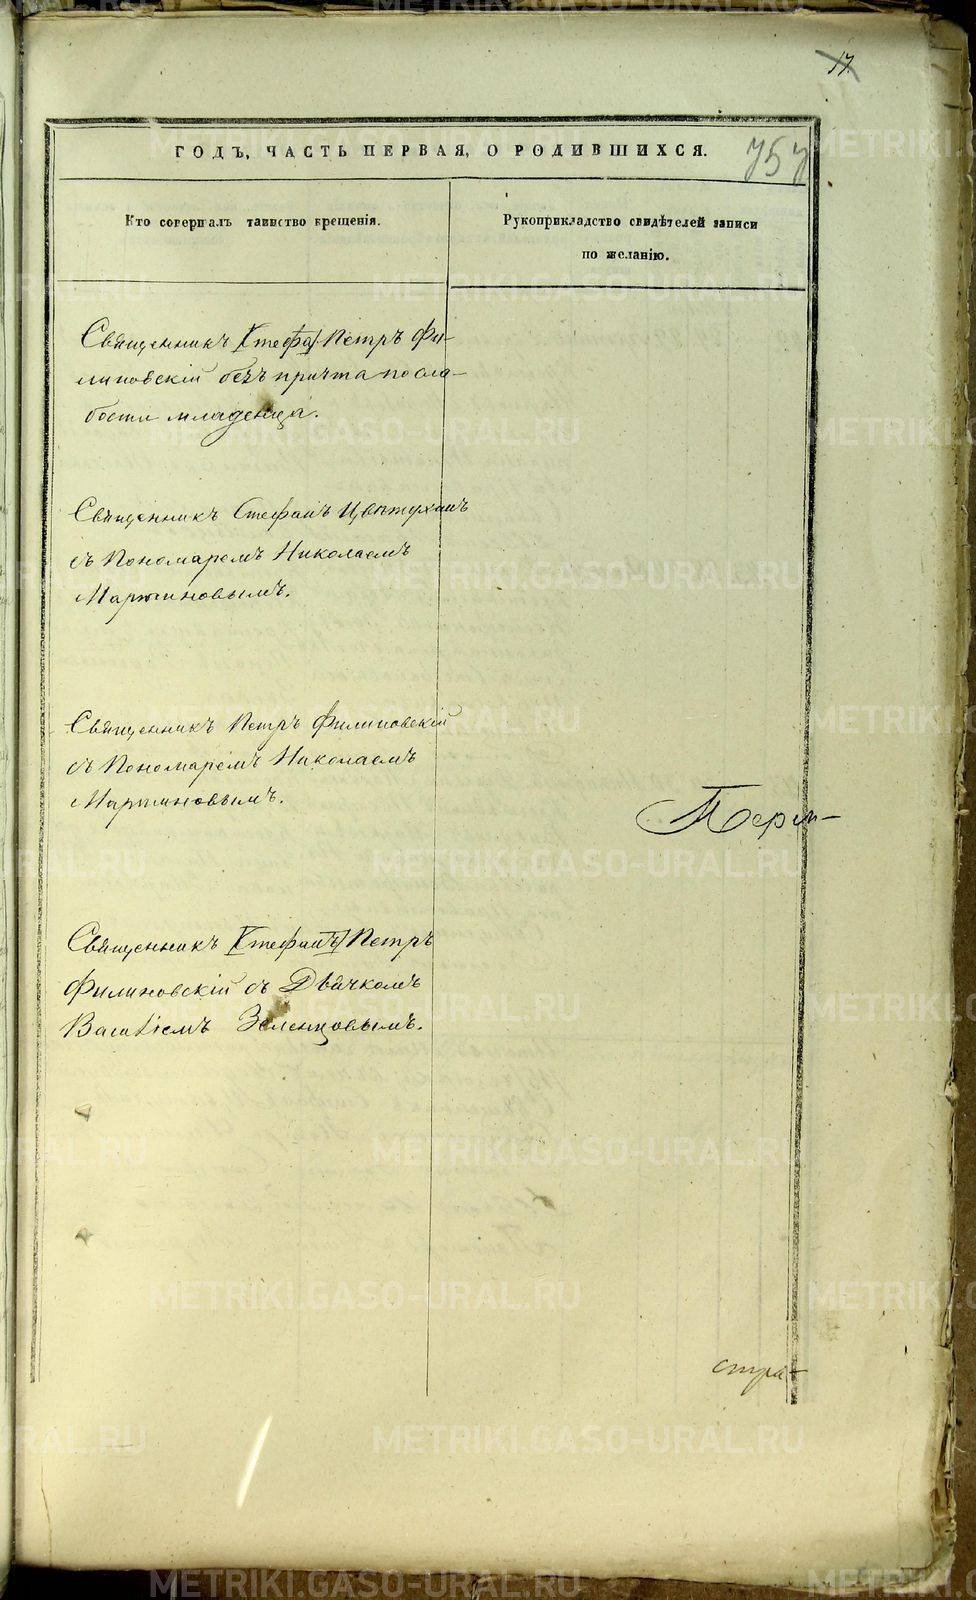 17
757
ГОДЪ, ЧАСТЬ ПЕРВАЯ, О РОДИВШИХСЯ.
Кто совершалъ таинство крещенія.
Рукоприкладство свидѣтелей записи
по желанію.
Священникъ Стефа Петръ Фи-
липовскій безъ причта по сла-
бости младенца.
Священникъ Стефанъ Цвѣтухинъ
съ Пономаремъ Николаемъ
Мартиновымъ.
Священникъ Петръ Филиповскій
съ Пономаремъ Николаемъ
Мартиновымъ.
Перм-
Священникъ Стефанъ Петръ
Филиповскій съ Дьячкомъ
Василіемъ Зеленцовымъ.
стра-
METRIKI.GASO-URAL.RU